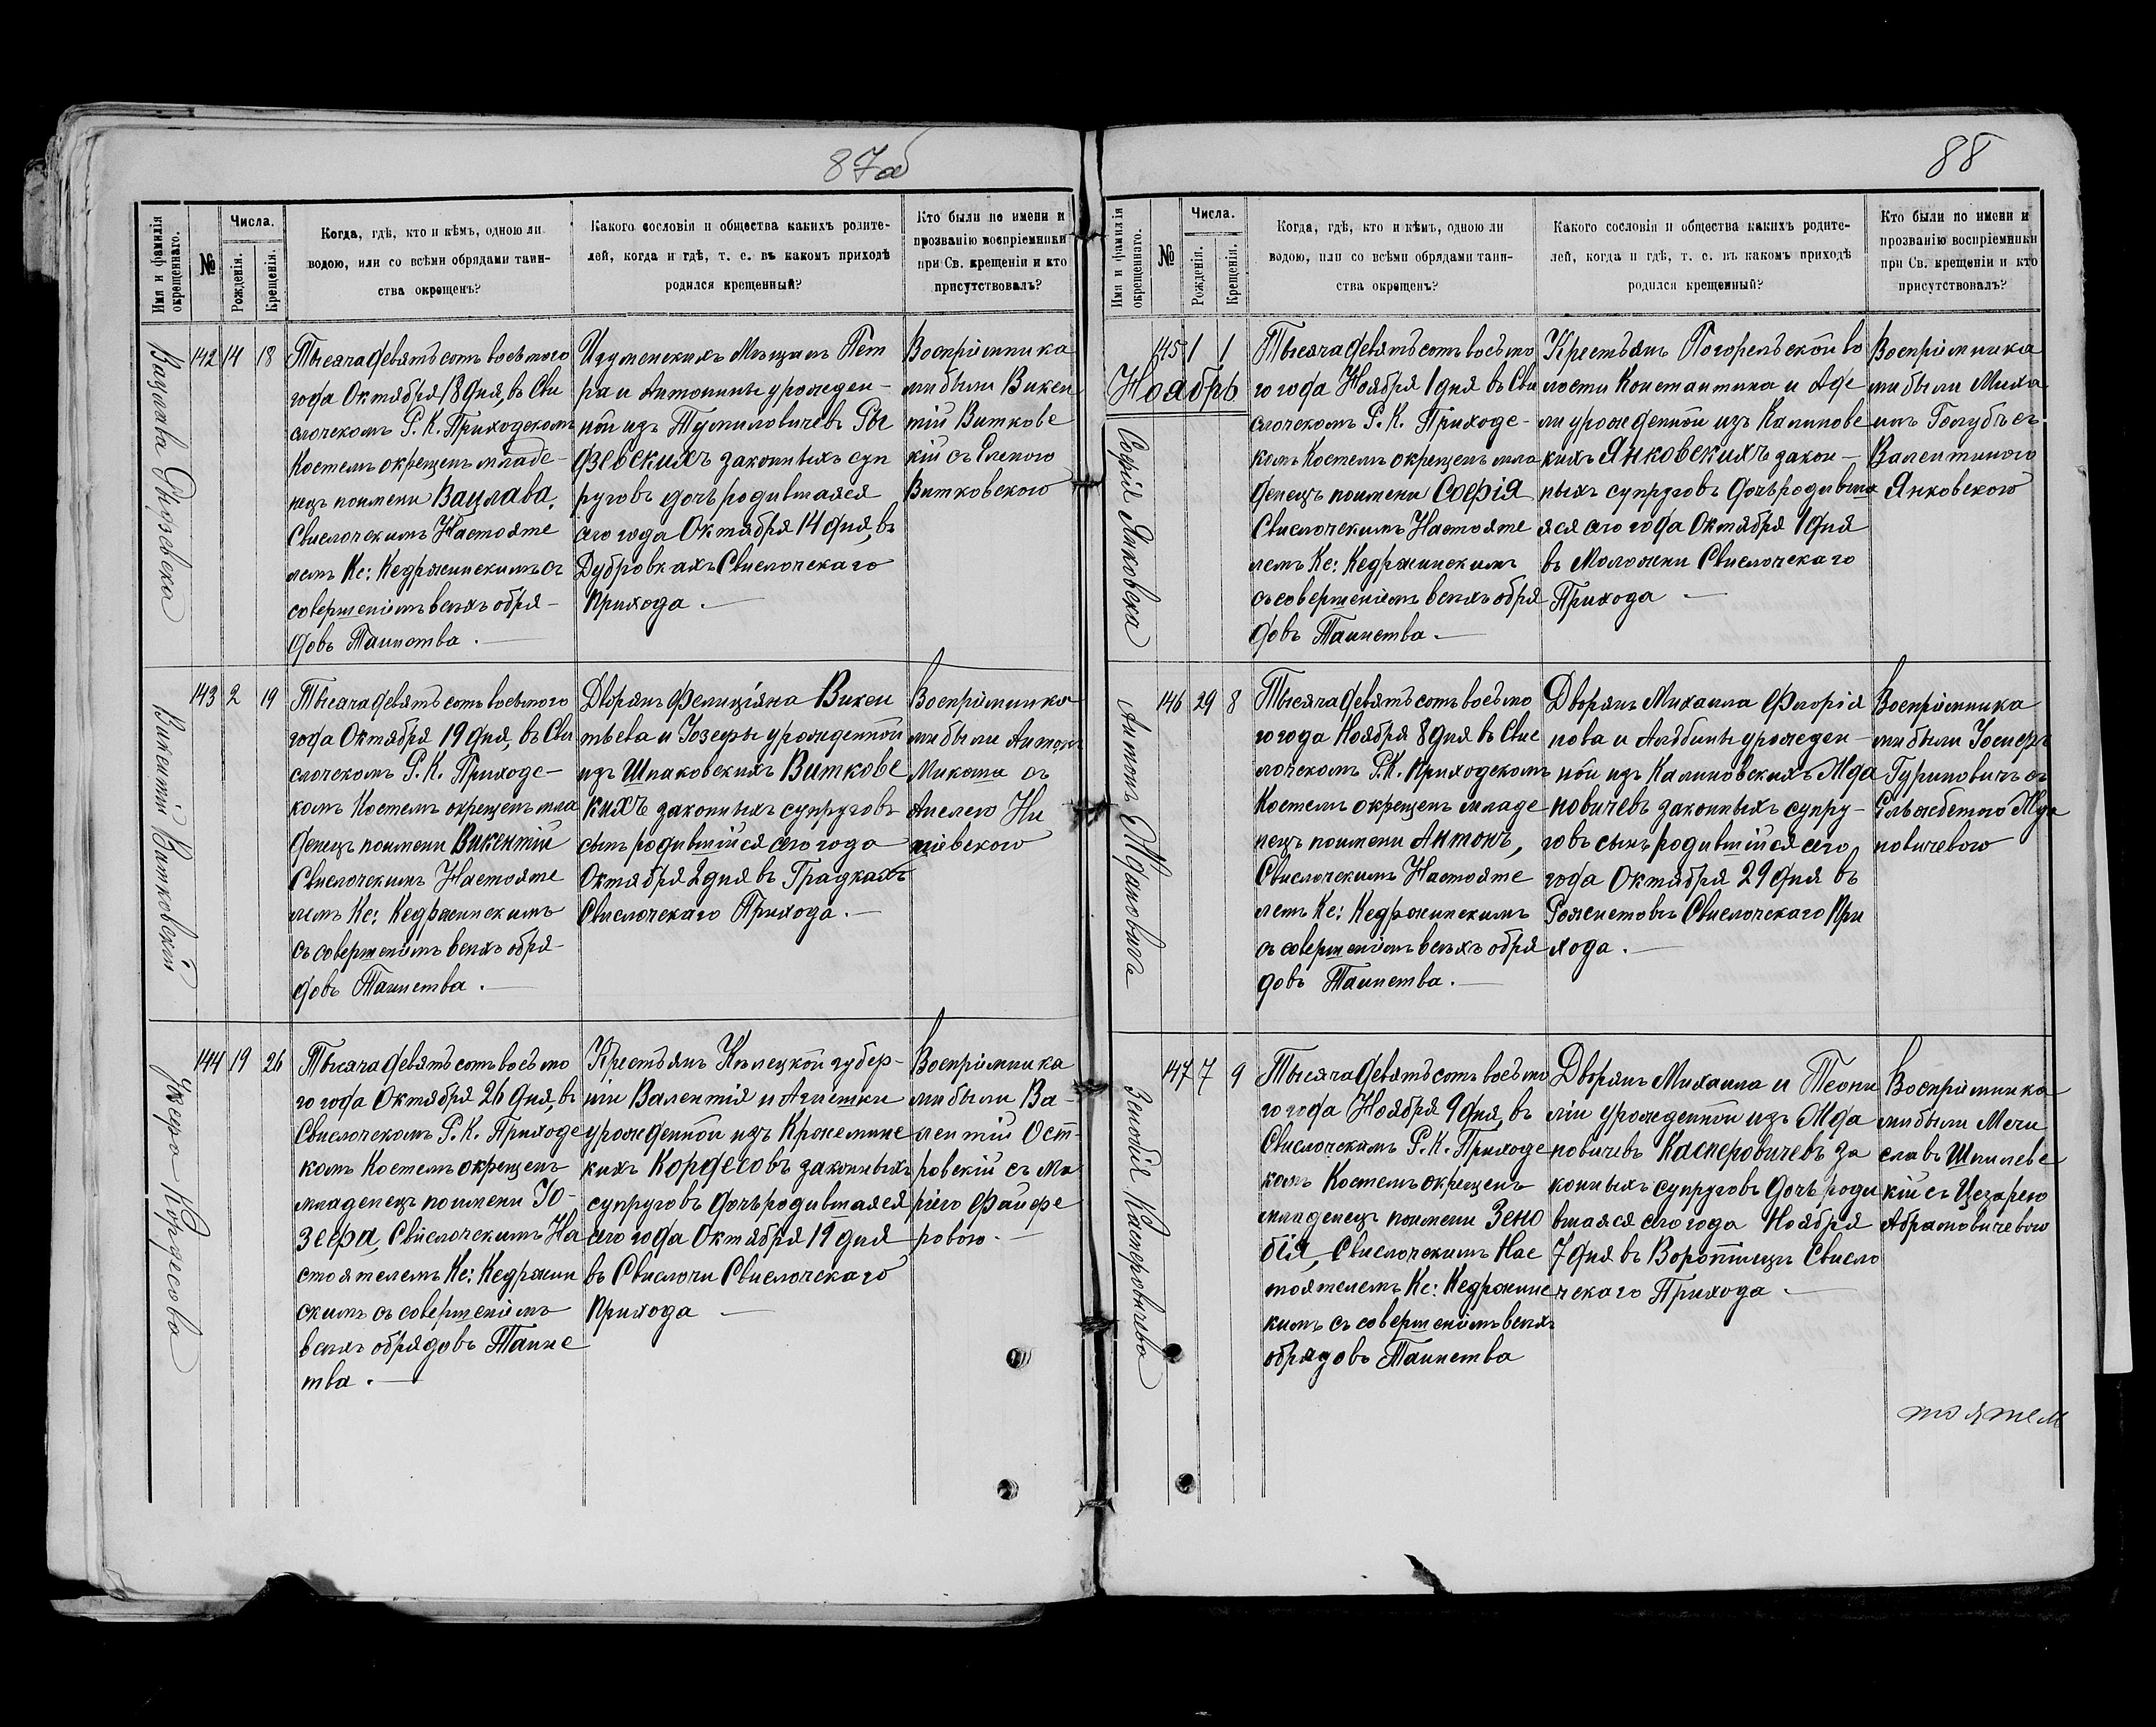 87об
Имя и фамилія окрещеннаго.
№
Числа.
Рожденія.
Крещенія.
Когда, гдѣ, кто и кѣмъ, одною ли
водою, или со всѣми обрядами таин-
ства окрещенъ?
Какого сословія и общества какихъ родите-
лей, когда и гдѣ, т. е. въ какомъ приходѣ
родился крещенный?
Кто были по имени и
прозванію воспріемники
при Св. крещеніи и кто
присутствовалъ?
142 14 18
Тысяча девятьсотъ восьмого
года Октября 18 дня, въ Сви
слочскомъ Р. К. Приходскомъ
Костелѣ окрещенъ младе-
нецъ поимени Вацлава,
Свислочскимъ Настояте
лемъ Кс: Кедржинскимъ съ
совершеніемъ всѣхъ обря-
довъ Таинства.—
Игуменскихъ Мѣщанъ Пет
ра и Антонины урожден-
ной изъ Тумиловичевъ
законныхъ суп
руговъ дочь родившаяся
сего года Октября 14 дня, въ
Дубровкахъ Свислочскаго
Прихода.—
Воспріемника
ми были Викен
тій Витковс
кій съ Еленою
Витковскою
143 2 19
Викентій Витковскій
Тысяча девятьсотъ восьмого
года Октября 19 дня, въ Сви
слочскомъ Р. К. Приходс-
комъ Костелѣ окрещенъ мла
денецъ поимени Викентій
Свислочскимъ Настояте
лемъ Кс: Кедржинскимъ
съ совершеніемъ всѣхъ обря-
довъ Таинства.—
Дворянъ Фелиціяна Викен
тьева и Іозефы урожденной
изъ Шпаковскихъ Витковс
кихъ законныхъ супруговъ
сынъ родившійся сего года
Октября 2 дня въ Градкахъ
Свислочскаго Прихода.—
Воспріемника
ми были Антонъ
Микоша съ
144 19 26
Іозефа Кордесова
Тысяча девятьсотъ восьмо
го года Октября 26 дня, въ
Свислочскомъ Р. К. Приходс
комъ Костелѣ окрещенъ
младенецъ поимени Іо-
зефа, Свислочскимъ На
стоятелемъ Кс: Кедржин
скимъ съ совершеніемъ
всѣхъ обрядовъ Таинс
тва.—
Крестьянъ Кѣлецкой губер-
ніи Валентія и Агнешки
урожденной изъ Кржеминс
кихъ Кордесовъ законныхъ
супруговъ дочь родившаяся
сего года Октября 19 дня
въ Свислочи Свислочскаго
Прихода —
Воспріемника
ми были Ва-
лентій Ост-
ровскій съ Ма
ріею Файфе
ровою.—
88
Имя и фамилія окрещеннаго.
№
Числа.
Рожденія.
Крещенія.
Когда, гдѣ, кто и кѣмъ, одною ли
водою, или со всѣми обрядами таин-
ства окрещенъ?
Какого сословія и общества какихъ родите-
лей, когда и гдѣ, т. е. въ какомъ приходѣ
родился крещенный?
Кто были по имени и
прозванію воспріемники
при Св. крещеніи и кто
присутствовалъ?
145 1 1
Ноябрь
Софія Янковска
Тысяча девятьсотъ восьмо
го года Ноября 1 дня въ Сви
слочскомъ Р. К. Приходс-
комъ Костелѣ окрещенъ мла
денецъ поимени Софія
Свислочскимъ Настояте
лемъ Кс: Кедржинскимъ
съ совершеніемъ всѣхъ обря
довъ Таинства.—
Крестьянъ Погорельской во
лости Константина и Аде
ли урожденной изъ Калиновс
кихъ Янковскихъ закон-
ныхъ супруговъ дочь родивша
яся сего года Октября 1 дня
въ Молочни Свислочскаго
Прихода —
Воспріемника
ми были Миха
илъ Голубъ съ
Валентиною
Янковскою
146 29 8
Антонъ Ждановичъ
Тысяча девятьсотъ восьмо
го года Ноября 8 дня въ Свис
лочскомъ Р. К. Приходскомъ
Костелѣ окрещенъ младе
нецъ поимени Антонъ,
Свислочскимъ Настояте
лемъ Кс: Кедржинскимъ
съ совершеніемъ всѣхъ обря
довъ Таинства.—
Дворянъ Михаила Флорія
нова и Альбины урожден-
ной изъ Калиновскихъ Жда
новичевъ законныхъ супру-
говъ сынъ родившійся сего
года Октября 29 дня въ
Свислочскаго При
хода.—
Воспріемника
ми были Іосифъ
Гуриновичъ съ
Ельжбетою Жда
новичевою
147 7 9
Зенобія Касперовичева
Тысяча девятьсотъ восьмо
го года Ноября 9 дня, въ
Свислочскомъ Р. К. Приходс
комъ Костелѣ окрещенъ
младенецъ поимени Зено
бія, Свислочскимъ Нас
тоятелемъ Кс: Кедржинс
кимъ съ совершеніемъ всѣхъ
обрядовъ Таинства
Дворянъ Михаила и Теони
ліи урожденной изъ Жда
новичевъ Касперовичевъ за
конныхъ супруговъ дочь роди
вшаяся сего года Ноября
7 дня въ Воротищѣ Свисло
чскаго Прихода.—
Воспріемника
ми были Мечи
славъ Шпилевс
кій съ Цезарею
Абрамовичевою